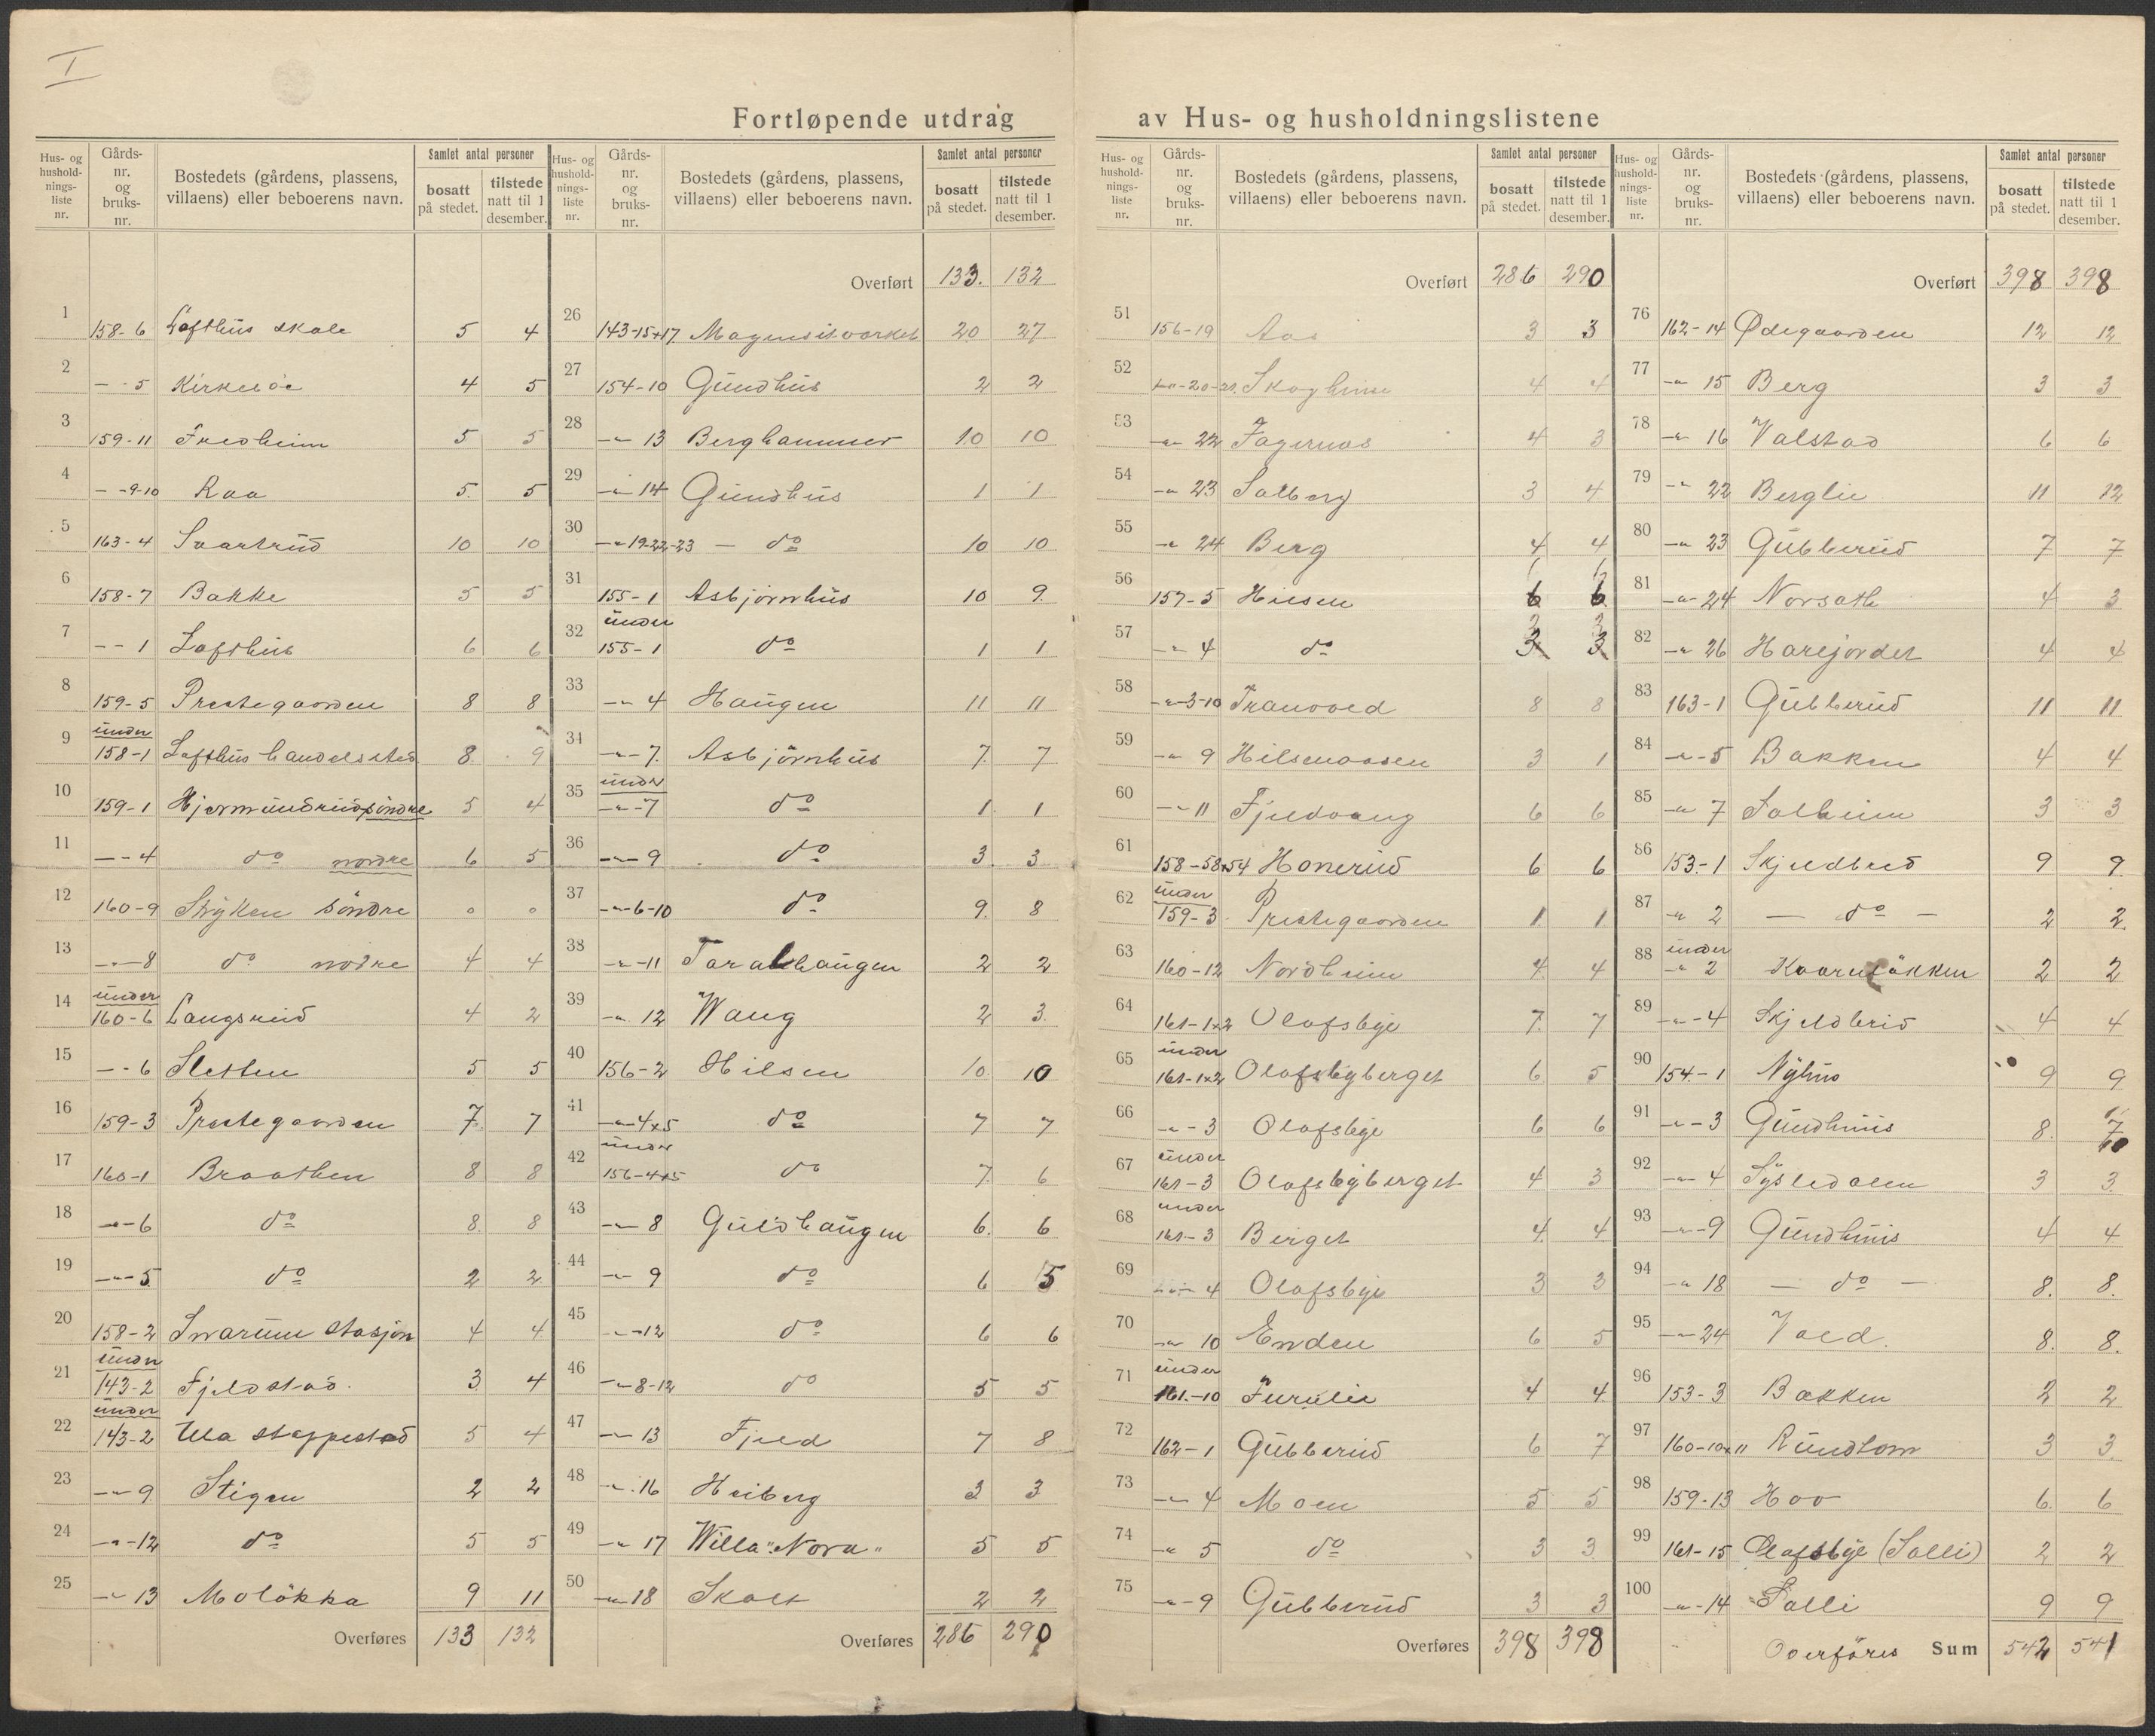 I
Fortløpende utdrag av Hus- og husholdningslistene
Hus- og husholdnings-liste nr. Gårds-nr. og bruks-nr. Bostedets (gårdens, plassens, villaens) eller beboerens navn. Samlet antal personer bosatt på stedet. tilstede natt til 1 desember.
1 158-6 Lofthus skole 5 4
2 - - 5 Kirkebøe 4 5
3 159-11 Fredheim 5 5
4 - -9-10 Raa 5. 5
5 163-4 Svartrud 10 10
6 158-7 Bakke 5 5
7 - - 1 Lofthus 6 6
8 159-5 Prestegaarden 8 8
9 under 158-1 Lofthus handelsted 8. 9
10 159-1 Hjermundrud søndre 5 4
11 - - 4 do nordre 6 5
12 160-9 Stryken søndre 0 0
13 -"-8 do nordre 4 4
14 under 160-6 Langsrud 4 2
15 - - 6 Sletten 5 5
16 159-3 Prestegaarden 7 7
17 160-1 Braathen 8 8
18 -"-6 do 8. 8
19 -"-5 do 2 2
20 158-2 Snarum stasjon 4 4
21 under 143-2 Fjeldstad. 3 4
22 under 143-2 Ula Steppestad 5 4
23 -"-9 Stigen 2 2
24 -"-12 do 5 5
25 -"-13 Moløkka 9 11
Overføres 133 132
Hus- og husholdnings-liste nr. Gårds-nr. og bruks-nr. Bostedets (gårdens, plassens, villaens) eller beboerens navn. Samlet antal personer bosatt på stedet. tilstede natt til 1 desember.
Overført 133. 132
26 143-15+17. Magnesitverket 20 27
27 154-10 Gundhus 2 2
28 -"- 13 Berghammer 10 10
29 -"- 14 Gundhus 1 1
30 -"-19-22-23 - do 10 10
31 155-1 Asbjørnhus 10 9
32 under 155-1 do 1 1
33 -"- 4 Haugen 11 11
34 -"-7. Asbjørnhus 7. 7
35 under -"-7 do 1. 1
36 -"-9 do 3. 3
37 -"-6-10 do 9. 8
38 -"-11 Taralhaugen 2 2
39 -"- 12 Waug 2 3.
40 156-2 Hilsen 10. 10
41 -"-4x5 do 7 7
42 under 156-4x5 do 7. 6
43 -"- 8 Guldhaugen 6. 6
44 -"- 9 do 6 5
45 -"-12 do 6 6
46 -"-8-12 do 5 5
47 -"- 13 Fjeld 7 8
48 -"-16 Heiberg 3 3
49 -"- 17 Willa "Nora" 5 5
50 -"-18 Skalt 2 2
Overføres 286 290
Hus- og husholdnings-liste nr. Gårds-nr. og bruks-nr. Bostedets (gårdens, plassens, villaens) eller beboerens navn. Samlet antal personer bosatt på stedet. tilstede natt til 1 desember.
Overført 286 290
51 156-19 Aas 3 3
52 -"-20-21. Skogheim 4 4
53 -"- 22 Fagernes 4 3
54 -"- 23 Solberg 3 4
55 -"- 24 Berg 4 4
56 157-5 Hilsen 6 6
57 -"- 4 do 3 3
58 -"-3-10 Tranvoed 8 8
59 -"- 9 Hilsenaasen 3 1
60 -"- 11 Fjeldvang 6 6
61 158-58x54 Honerud 6 6
62 under 159-3. Prestegaarden 1. 1
63 160-12 Nordheim 4. 4
64 161-1x2 Olafsbye 7. 7
65 under 161-1x2 Olafsbyberget 6 5
66 -"-3 Olafsbye 6 6
67 under 161-3 Olafsbyberget 4 3
68 under 161-3 Berget 4. 4.
69 4 Olafsbye 3 3
70 -"- 10 Enden 6 5
71 under 161.-10 Furulie 4 4.
72 162-1 Gubberud 6 7
73 -"- 4 Moen 5 5
74 -"- 5 do 3 3
75 -"-9 Gubberud 3 3
Overføres 398 398
Hus- og husholdnings-liste nr. Gårds-nr. og bruks-nr. Bostedets (gårdens, plassens, villaens) eller beboerens navn. Samlet antal personer bosatt på stedet. tilstede natt til 1 desember.
Overført 398 398
76 162-14 Ødegaarden 12 12
77 -"- 15 Berg 3 3
78 -"- 16 Valstad 6 6
79 -"- 22 Berglie 11 12
80 -"- 23 Gubberud 7 7
81 -"-24 Norsath 4 3
82 -"- 26 Harejordet 4 4
83 163-1 Gubberud 11 11
84 -"-5 Bakken 4 4
85 -"- 7 Solheim 3 3
86 153.-1 Skjeldbred 9 9.
87 -"- 2 - do - 2 2.
88 under -"- 2 Kaaraløkken 2 2
89 -"-4 Skjeldbrid 4 4
90 154.-1 Nyhus 9 9
91 -"-3 Gundhus 8. 7
92 -"- 4 Sysledalen 3 3.
93 -"-9 Gundhus 4 4
94 -"- 18 - do - 8. 8.
95 -"-24 Vold. 8. 8.
96 153-3 Bakken 2 2
97 160-10x11 Rundtom 3 3.
98 159-13 Hov 6. 6
99 161-15 Olafsbye (Solli) 2 2
100 -"-14 Solli 9 9
Overføres Sum 542 541